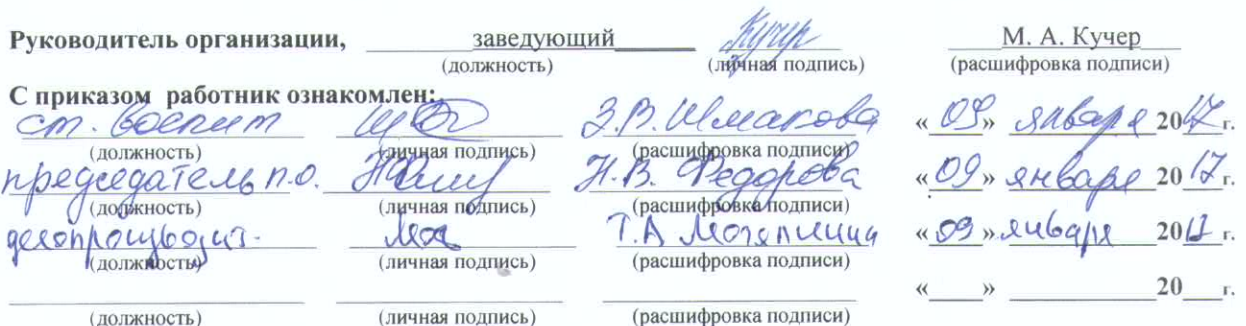 Руководитель организации, заведующий Кучер М. А. Кучер
(должность) (личная подпись) (расшифровка подписи)
С приказом работник ознакомлен:
ст. воспит З.В. Шмакова «09» января 2017 г.
(должность) (личная подпись) (расшифровка подписи)
председатель п.о. Н.В. Федорова «09» января 2017 г.
(должность) (личная подпись) (расшифровка подписи)
делопроизводит. Т.А «09» января 2017 г.
(должность) (личная подпись) (расшифровка подписи)
«____» ____________20___г.
(должность) (личная подпись) (расшифровка подписи)